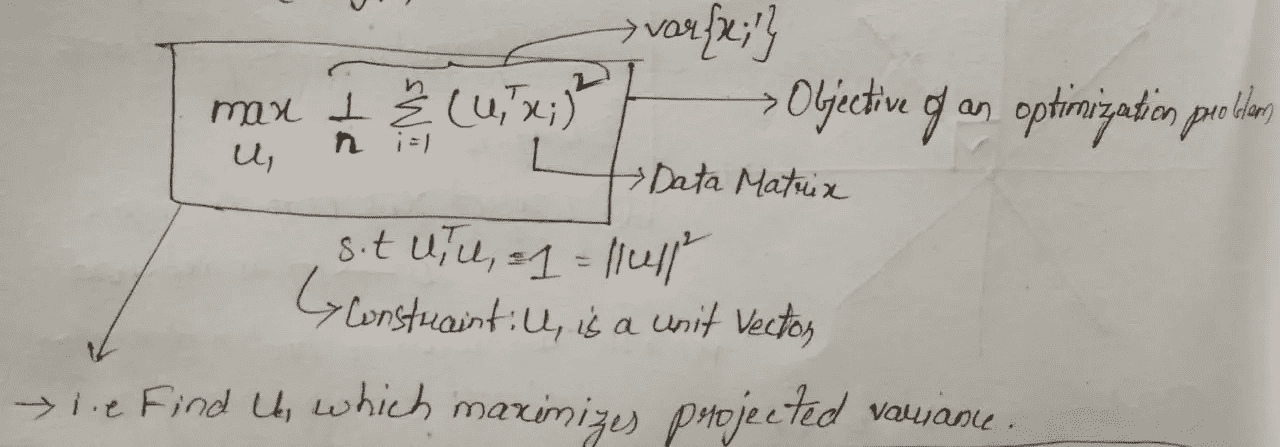 → var{xᵢ'}
max 1/n Σ (u₁ᵀxᵢ)² → Objective of an optimization problem
u₁ i=1 n
→ Data Matrix
s.t u₁ᵀu₁ = 1 = ||u||²
↳ Constraint: u₁ is a unit Vector
→ i.e Find u₁ which maximizes projected variance.